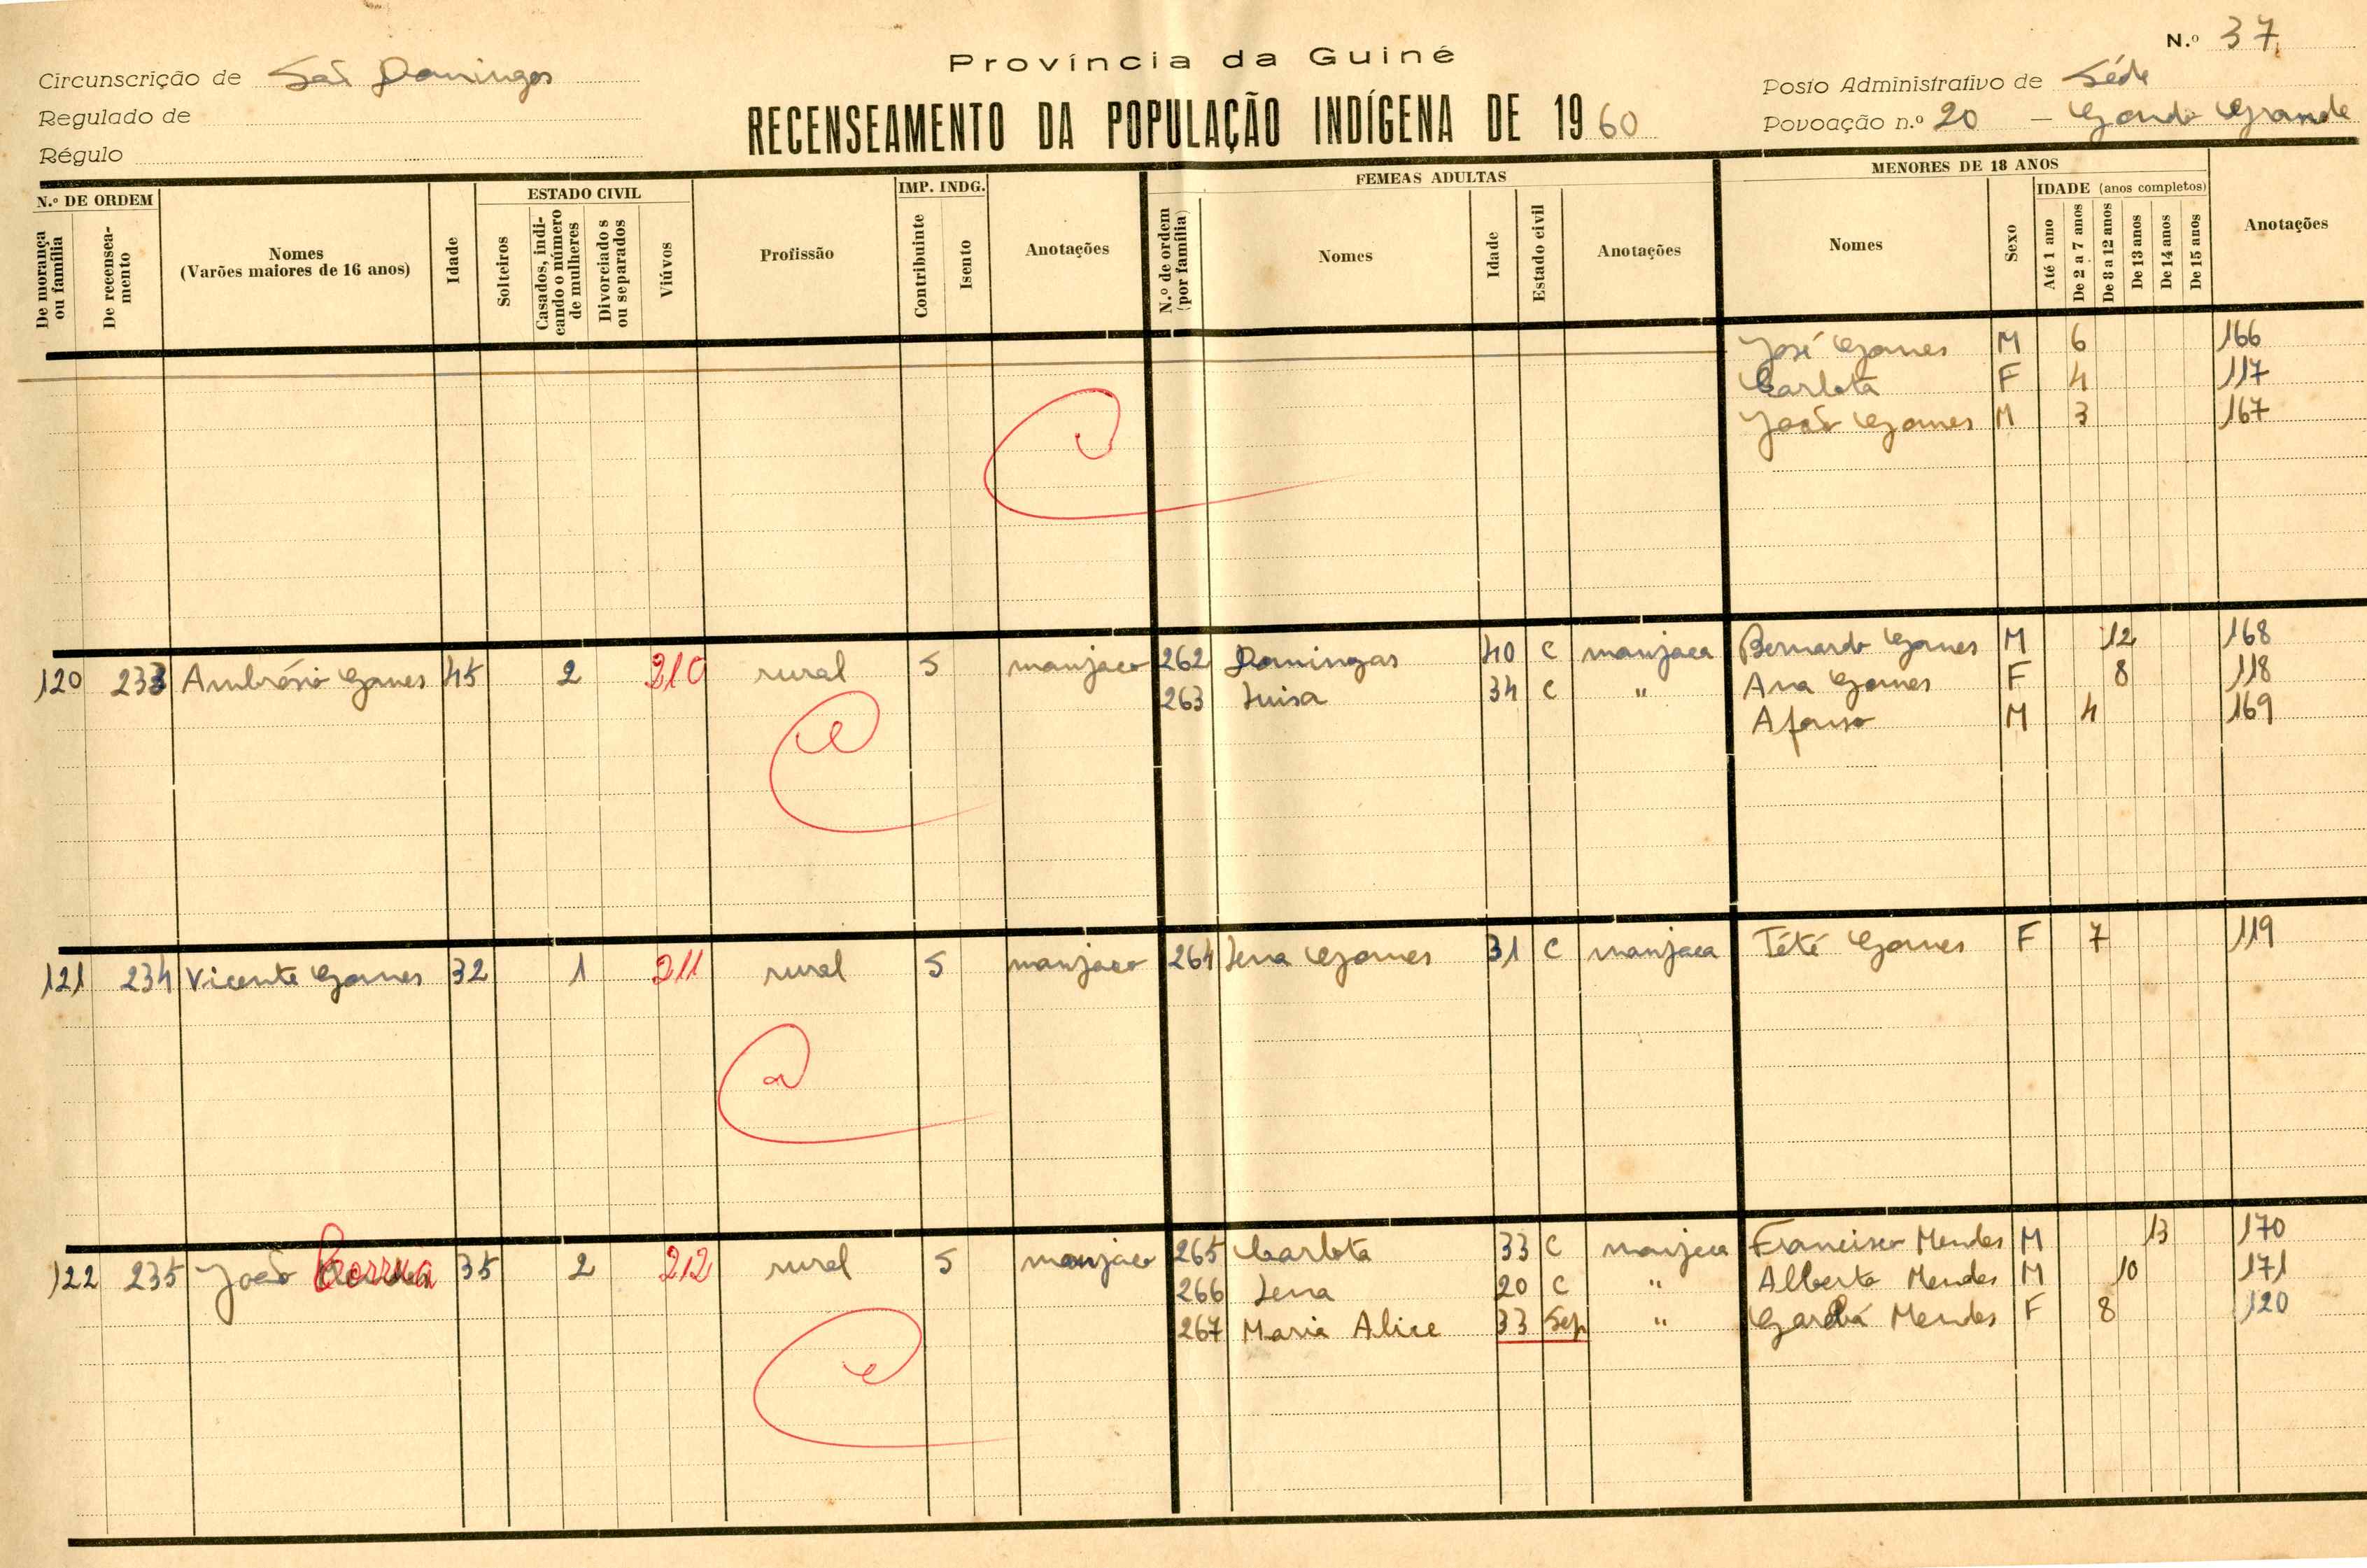 N.º 37
Província da Guiné
Circunscrição de São Domingos
Posto Administrativo de Séde
Regulado de
RECENSEAMENTO DA POPULAÇÃO INDÍGENA DE 1960
Povoação n.º 20 — Grande
Régulo
N.º DE ORDEM
De morança ou família
De recenseamento
Nomes
(Varões maiores de 16 anos)
Idade
ESTADO CIVIL
Solteiros
Casados, indicando o número de mulheres
Divorciados ou separados
Viúvos
Profissão
IMP. INDG.
Contribuinte
Isento
Anotações
FEMEAS ADULTAS
N.º de ordem (por família)
Nomes
Idade
Estado civil
Anotações
MENORES DE 18 ANOS
Nomes
Sexo
IDADE (anos completos)
Até 1 ano
De 2 a 7 anos
De 8 a 12 anos
De 13 anos
De 14 anos
De 15 anos
Anotações
José Gomes M 6 166
Carlota F 4 117
João Gomes M 3 167
120 233 Ambrósio Gomes 45 2 210 rural S manjaco 262 Domingas 40 C manjaca Bernardo Gomes M 12 168
263 Luisa 34 C " Ana Gomes F 8 118
Afonso M 4 169
121 234 Vicente Gomes 32 1 211 rural S manjaco 264 Lena Gomes 31 C manjaca Tété Gomes F 7 119
122 235 João Correia 35 2 212 rural S manjaco 265 Carlota 33 C manjaca Francisco Mendes M 13 170
266 Lena 20 C " Alberto Mendes M 10 171
267 Maria Alice 33 Sep " Mendes F 8 120